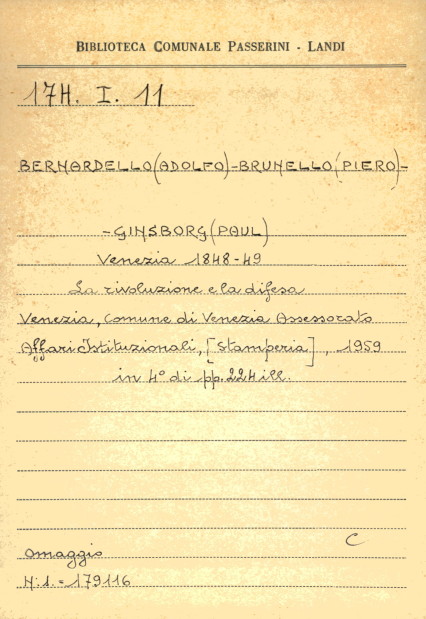 BIBLIOTECA COMUNALE PASSERINI - LANDI
17H. I. 11
BERNARDELLO (ADOLFO) - BRUNELLO (PIERO) -
- GINSBORG (PAUL)
Venezia 1848-49
La rivoluzione e la difesa
Venezia, Comune di Venezia Assessorato
Affari Istituzionali, [Stamperia], 1959
in 4° di pp. 224 ill.
C
Omaggio
N. 1. = 179116